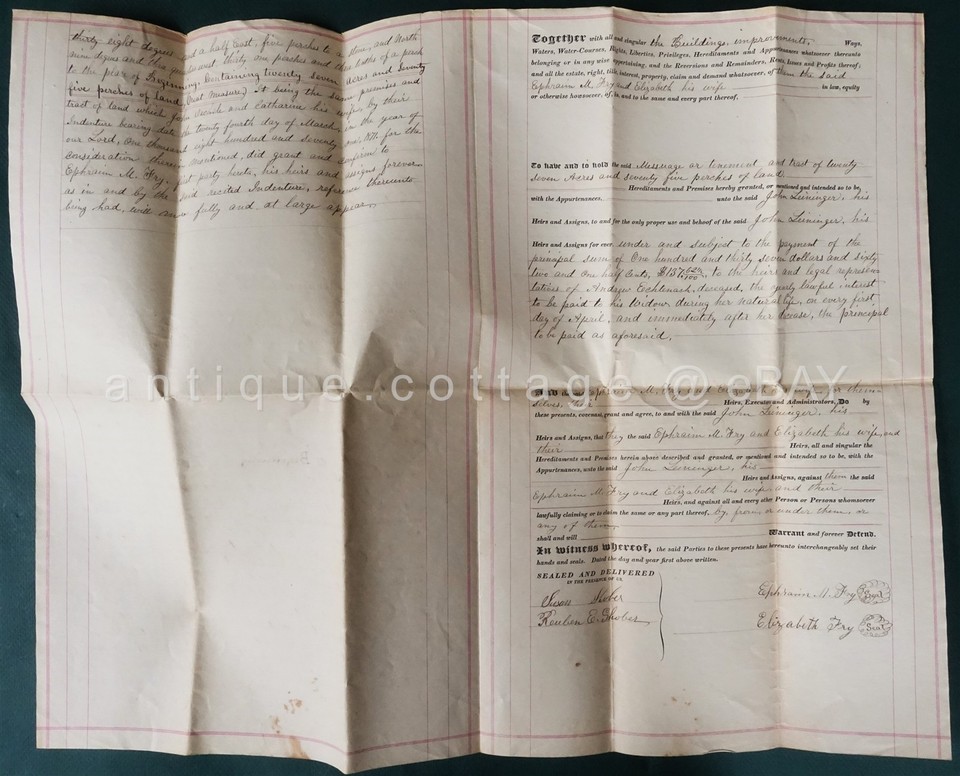 thirty eight degrees and a half East, five perches to a stone, and North
nine degrees and three west thirty one perches and three tenths of a perch
to the place of Beginning, Containing twenty seven Acres and Seventy
five perches of land, Measure) It being the same premises and
tract of land which John and Catharine his wife, by their
Indenture bearing date the twenty fourth day of March in the year of
our Lord, One thousand eight hundred and seventy for the
consideration therein mentioned, did grant and confirm to
Ephraim M. Fry, party hereto, his heirs and assigns forever
as in and by the said recited Indenture, reference thereunto
being had, will more fully and at large appear.
Together with all and singular the Buildings, improvements, Ways,
Waters, Water-Courses, Rights, Liberties, Privileges, Hereditaments and Appurtenances whatsoever thereunto
belonging or in any wise appertaining, and the Reversions and Remainders, Rents, Issues and Profits thereof;
and all the estate, right, title, interest, property, claim and demand whatsoever, of them the said
Ephraim M. Fry and Elizabeth his wife in law, equity
or otherwise howsoever, of, in, and to the same and every part thereof,
To have and to hold the said Messuage or tenement and tract of twenty
seven Acres and seventy five perches of land
Hereditaments and Premises hereby granted, or mentioned and intended so to be,
with the Appurtenances, unto the said John Leininger, his
Heirs and Assigns, to and for the only proper use and behoof of the said John Leininger, his
Heirs and Assigns for ever. under and subject to the payment of the
principal sum of One hundred and thirty seven dollars and sixty
two and one half cents, $137 62½/100, to the heirs and legal represen-
tatives of Andrew deceased, the yearly lawful interest
to be paid to his Widow during her natural life, on every first
day of April, and immediately after her decease, the principal
to be paid as aforesaid.
And the said Ephraim M. Fry and Elizabeth his wife, for them-
selves, their Heirs, Executors and Administrators, Do by
these presents, covenant, grant and agree, to and with the said John Leininger, his
Heirs and Assigns, that they the said Ephraim M. Fry and Elizabeth his wife, and
their Heirs, all and singular the
Hereditaments and Premises herein above described and granted, or mentioned and intended so to be, with the
Appurtenances, unto the said John Leininger, his
Heirs and Assigns, against them the said
Ephraim M. Fry and Elizabeth his wife and their
Heirs, and against all and every other Person or Persons whomsoever
lawfully claiming or to claim the same or any part thereof, by, from, or under them, or
any of them
shall and will Warrant and forever Defend.
In witness whereof, the said Parties to these presents have hereunto interchangeably set their
hands and seals. Dated the day and year first above written.
SEALED AND DELIVERED
IN THE PRESENCE OF US,
Susan Shober
Reuben E. Shober
Ephraim M. Fry Seal
Elizabeth Fry Seal
antique.cottage @ eBAY